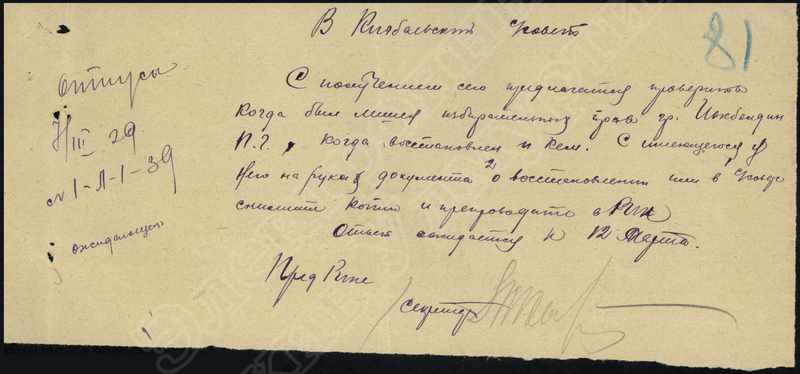 В Кизбальский Совет
81
Отпуск
III 29
№ 1-Л-1-39
ожидающем
С получением сего предлагается проверить
когда был лишен избирательных прав гр.
П. Г., когда восстановлен и кем. С имеющегося у
него на руках документа о восстановлении или в
снимите копию и препроводите в РИК
Ответ ожидается к 12 Марта.
Пред Рика
/секретарь